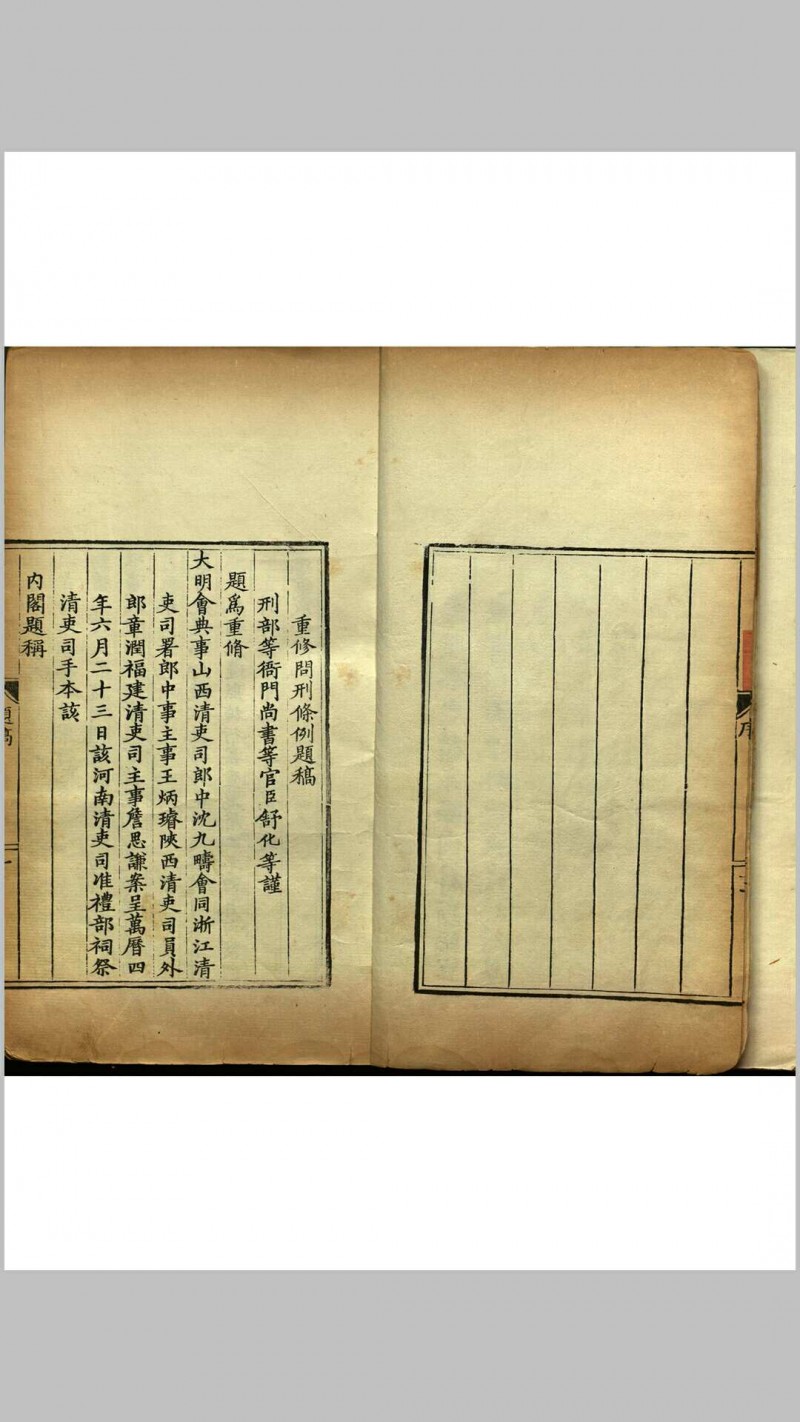 序
重修問刑條例題稿
刑部等衙門尚書等官臣舒化等謹
題爲重脩
大明會典事山西清吏司郎中沈九疇會同浙江清
吏司署郎中事主事王炳璿陜西清吏司員外
郎章潤福建清吏司主事詹思謙案呈萬曆四
年六月二十三日該河南清吏司准禮部祠祭
清吏司手本該
內閣題稱
題稿